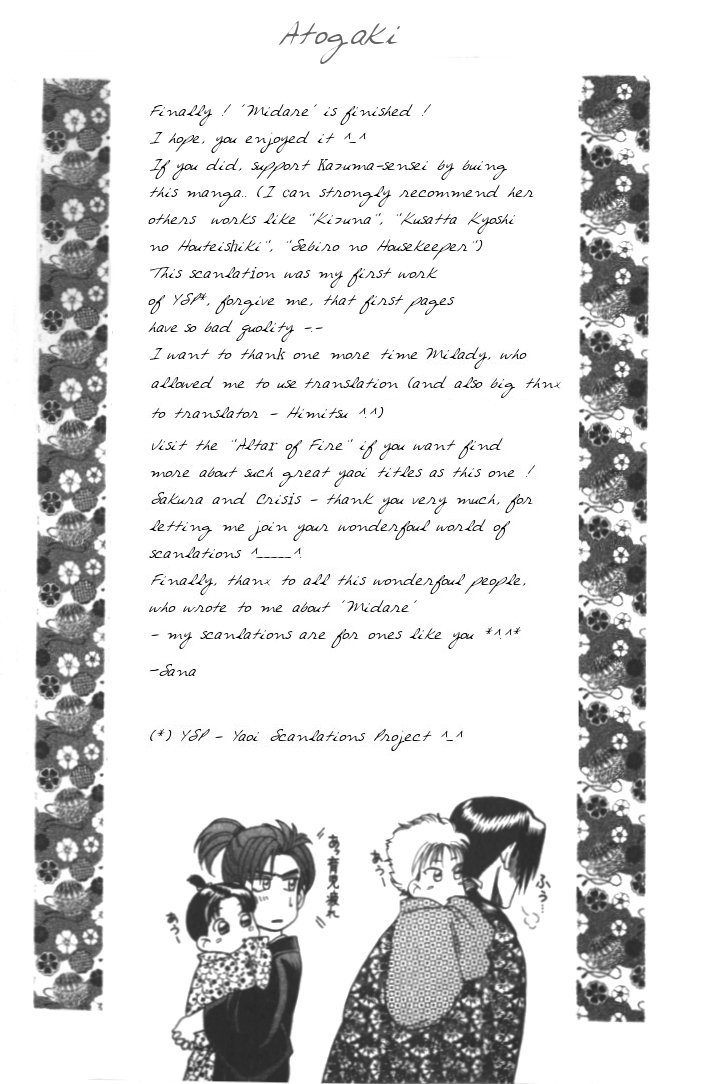 Atogaki
Finally ! 'Midare' is finished !
I hope, you enjoyed it ^_^
If you did, support Kazuma-sensei by buing
this manga.. (I can strongly recommend her
others works like "Kizuna", "Kusatta Kyoshi
no Houteishiki", "Sebiro no Housekeeper")
This scanlation was my first work
of YSP*, forgive me, that first pages
have so bad quolity -.-
I want to thank one more time Milady, who
allowed me to use translation (and also big thnx
to translator - Himitsu ^.^)
Visit the "Altar of Fire" if you want find
more about such great yaoi titles as this one !
Sakura and Crisis - thank you very much, for
letting me join your wonderfoul world of
scanlations ^_____^
Finally, thanx to all this wonderfoul people,
who wrote to me about 'Midare'
- my scanlations are for ones like you *^.^*
-Sana
(*) YSP - Yaoi Scanlations Project ^_^
あ〜育児疲れ
あぅー
あぅー
ふぅ…